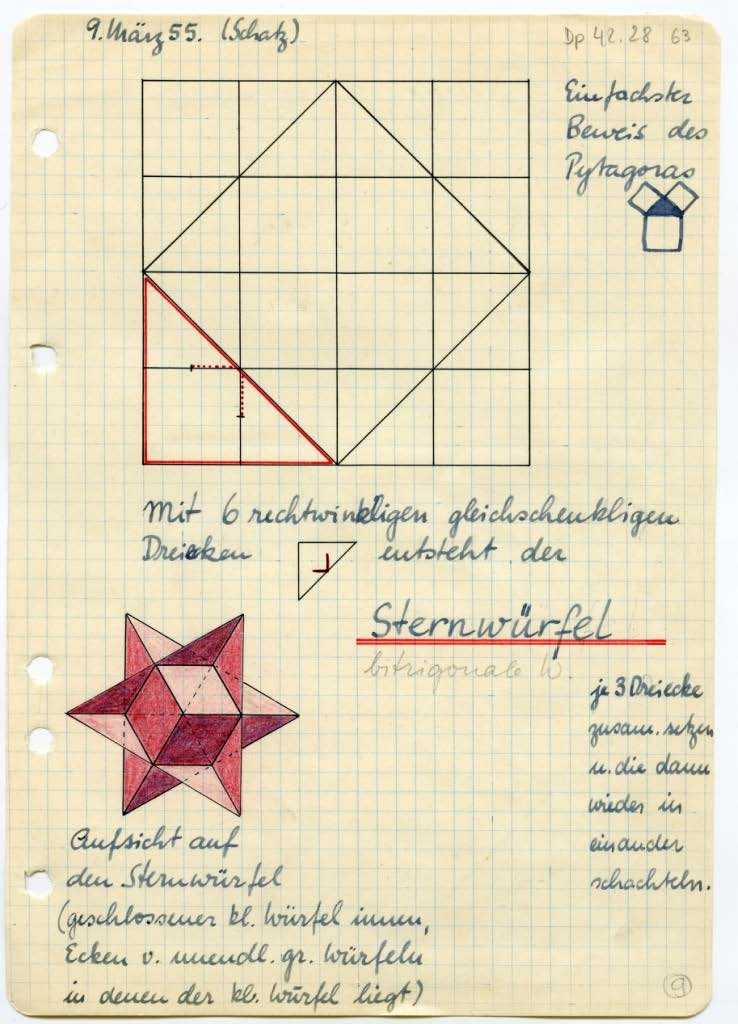 9. März 55. (Schatz)
Dp 42.28 63
Einfachster
Beweis des
Pytagoras
Mit 6 rechtwinkligen gleichschenkligen
Dreiecken entsteht der
Sternwürfel
bitrigonale W.
je 3 Dreiecke
zusam. setzen
u. die dann
wieder in
einander
schachteln.
Aufsicht auf
den Sternwürfel
(geschlossener kl. Würfel innen,
Ecken v. unendl. gr. Würfeln
in denen der kl. Würfel liegt)
9